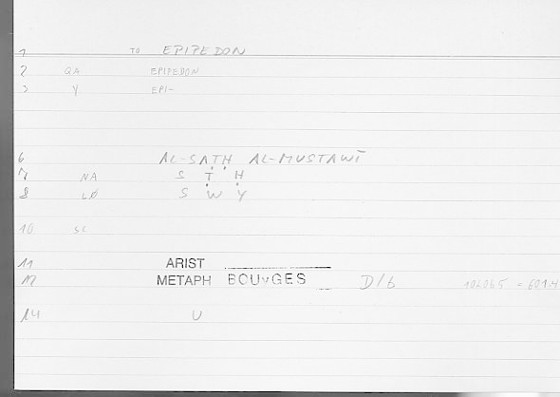 1 TO EPIPEDON
2 QA EPIPEDON
3 Y EPI-
6 AL-SAṬḤ AL-MUSTAWĪ
7 NA S Ṭ Ḥ
8 LØ S W Y
10 SC
11 ARIST
12 METAPH BOUYGES D/b
14 U